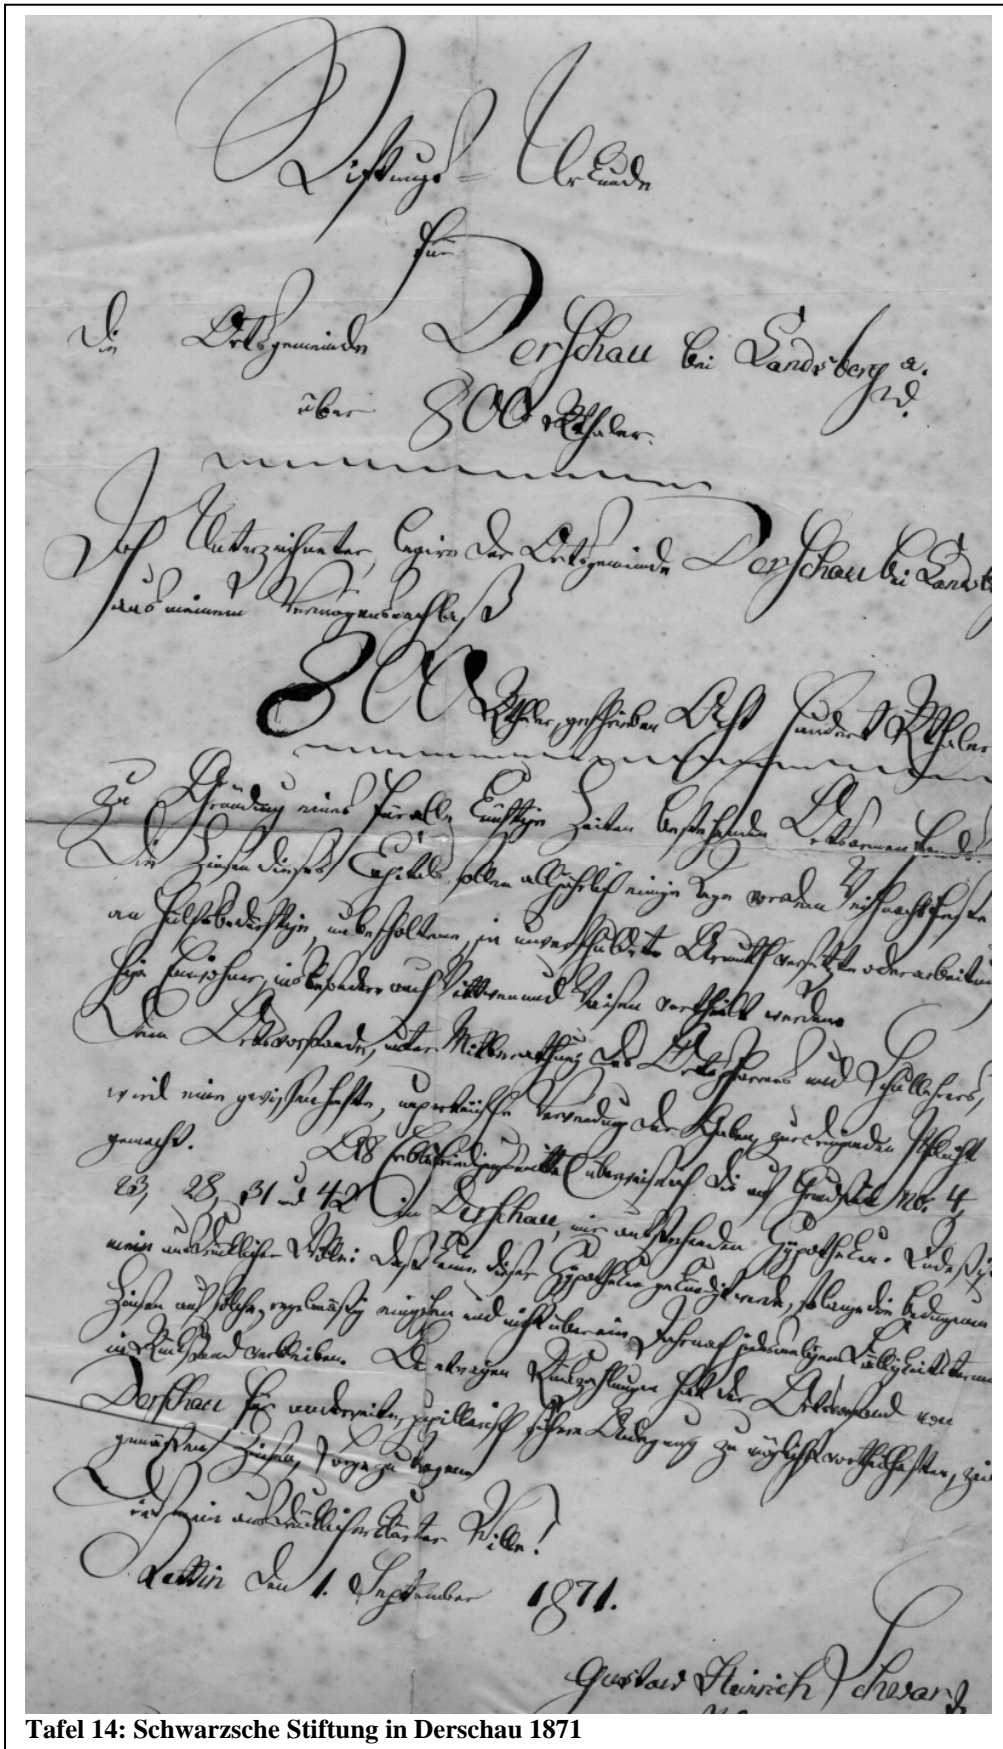 Stiftungs-Urkunde
für
die Ortsgemeinde Derschau bei Landsberg a.
W.
über 800 Rthaler.
Ich Unterzeichneter, legire der Ortsgemeinde Derschau bei Landsb
aus meinem Vermögensnachlaß
800 Rthler, geschrieben Acht Hundert Rthaler
zu Gründung eines für alle künftige Zeiten bestehenden Ortsarmenfonds.
Die Zinsen dieses Capitals sollen alljährlich einige Tage vor dem Weihnachtsfeste
an hülfsbedürftige, unbescholtene, in unverschuldete Armuth versetzte oder arbeitsun
hige Einwohner, insbesondere auch Wittwen und Waisen vertheilt werden.
Dem Ortsvorstande, unter Mitberathung des Ortspfarrers und Schullehrers,
wird eine gewissenhafte, unparteiische Verwendung der Gaben, zur dringenden Pflicht
gemacht. Als überweise ich die auf Grundstück No. 4,
23, 28, 31 und 42 in Derschau, mir zustehenden Hypotheken. Indeß ist
mein ausdrücklicher Wille: daß keine dieser Hypotheken gekündigt werde, so lange die bedungenen
Zinsen auf solche, regelmäßig eingehen und nicht über ein Jahr nach jedesmaligem Fälligkeitstermin
in Rückstand verbleiben. Bei etwaigen Rückzahlungen hat der Ortsvorstand von
Derschau für anderweite, pupillarisch sichere Anlegung zu möglichst vortheilhaften, zei
gemäßen Zinsen, Sorge zu tragen
Dies mein ausdrücklich erklärter Wille!
Rettin den 1. September 1871.
Gustav Heinrich Schwarz
Tafel 14: Schwarzsche Stiftung in Derschau 1871